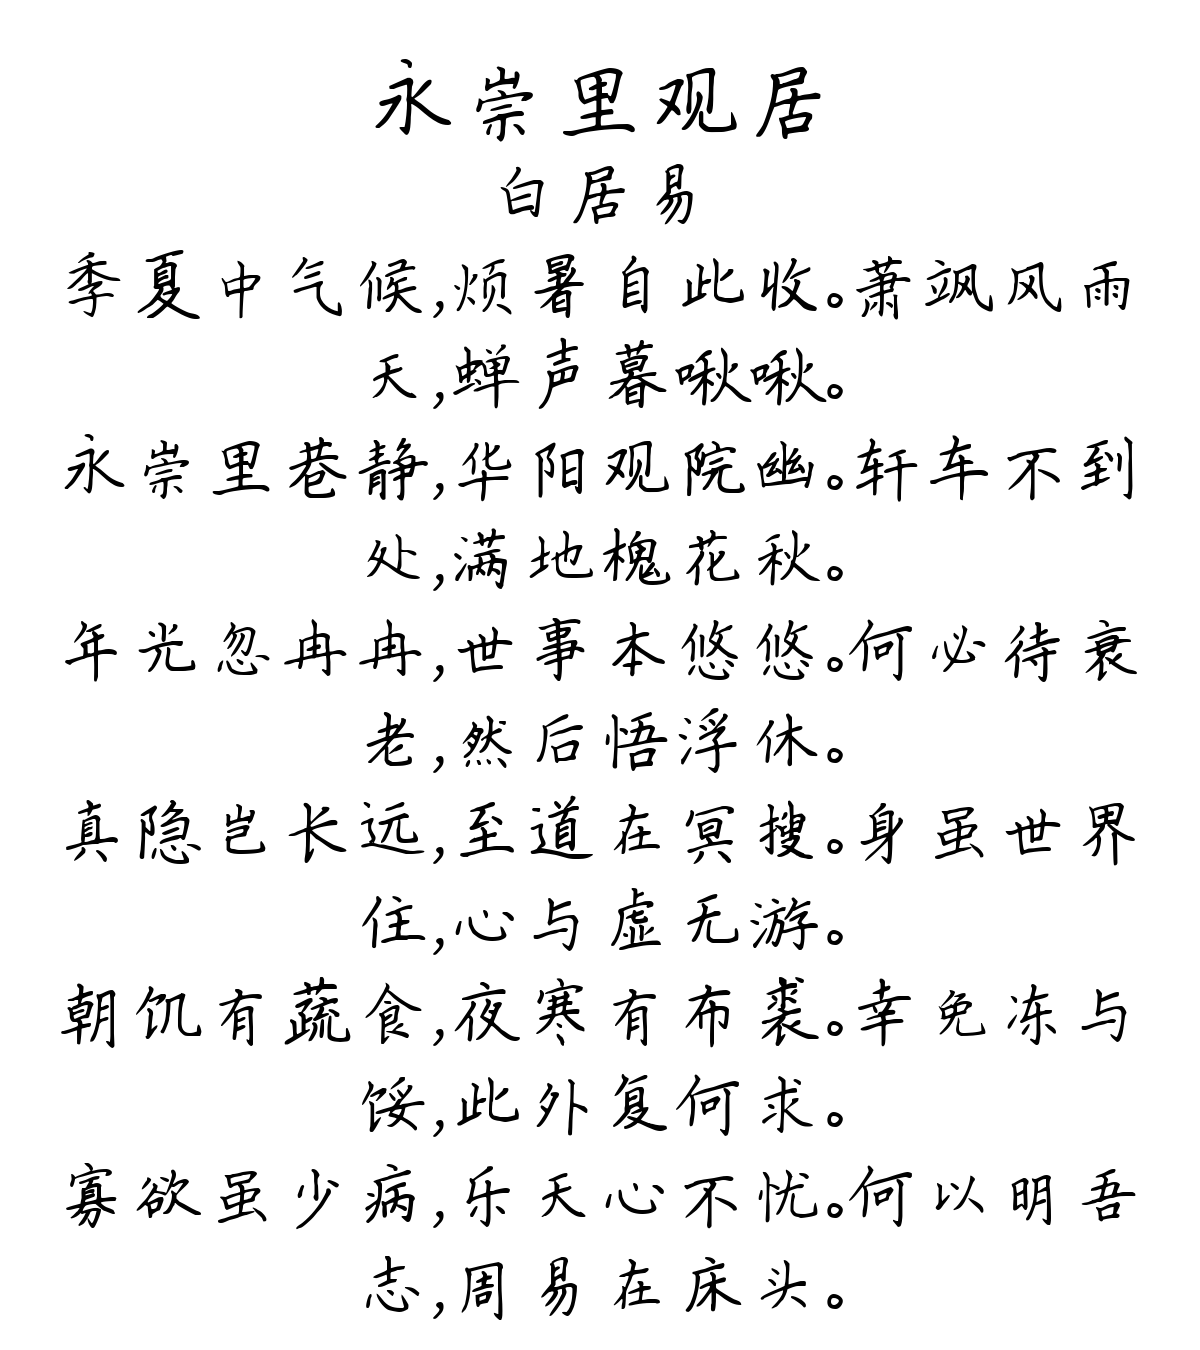 永崇里观居
白居易
季夏中气候,烦暑自此收。萧飒风雨
天,蝉声暮啾啾。
永崇里巷静,华阳观院幽。轩车不到
处,满地槐花秋。
年光忽冉冉,世事本悠悠。何必待衰
老,然后悟浮休。
真隐岂长远,至道在冥搜。身虽世界
住,心与虚无游。
朝饥有蔬食,夜寒有布裘。幸免冻与
馁,此外复何求。
寡欲虽少病,乐天心不忧。何以明吾
志,周易在床头。